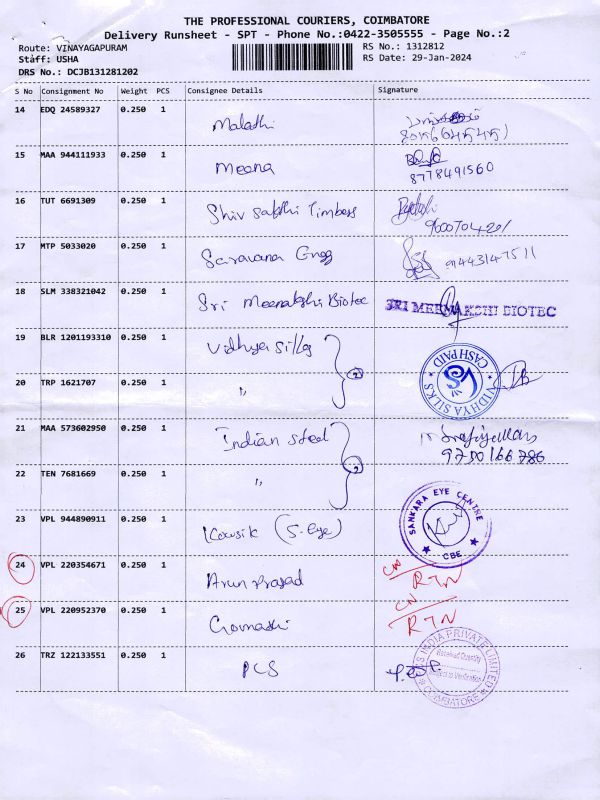 THE PROFESSIONAL COURIERS, COIMBATORE
Delivery Runsheet - SPT - Phone No.:0422-3505555 - Page No.:2
Route: VINAYAGAPURAM
RS No.: 1312812
Staff: USHA
RS Date: 29-Jan-2024
DRS No.: DCJB131281202
S No Consignment No Weight PCS Consignee Details Signature
14 EDQ 24589327 0.250 1 Malathi
15 MAA 944111933 0.250 1 Meena
8778491560
16 TUT 6691309 0.250 1 Shiv Sakthi Timbers
9600704201
17 MTP 5033020 0.250 1 Saravana Engg 9443147511
18 SLM 338321042 0.250 1 Sri Meenakshi Biotec SRI MEENAKSHI BIOTEC
19 BLR 1201193310 0.250 1 Vidhya Silks
2
VIDHYA SILKS CASH PAID VS
20 TRP 1621707 0.250 1 "
21 MAA 573602950 0.250 1 Indian Steel
9750166786
2
22 TEN 7681669 0.250 1 "
23 VPL 944890911 0.250 1 Kousik (S. Eye) SANKARA EYE CENTRE CBE
24 VPL 220354671 0.250 1 Arun Prasad CN RTN
25 VPL 220952370 0.250 1 CN RTN
26 TRZ 122133551 0.250 1 PCS
INDIA PRIVATE LIMITED
Received Quantity
Subject to Verification
COIMBATORE